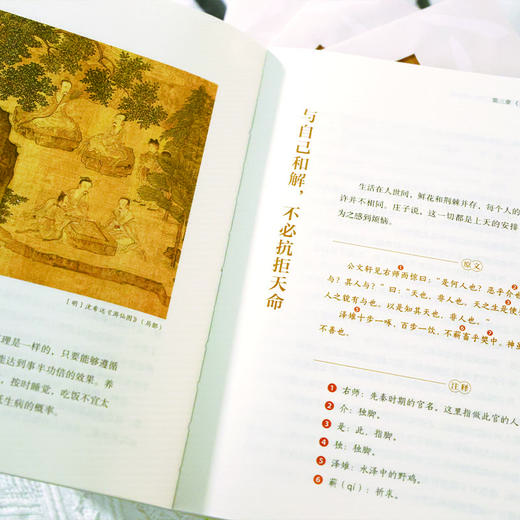 [明] 沈希远《游仙图》(局部)
理是一样的,只要能够遵循
能达到事半功倍的效果。养
,按时睡觉,吃饭不宜太
生病的概率。
第三章
与自己和解,不必抗拒天命
生活在人世间,鲜花和荆棘并存,每个人的
许并不相同。庄子说,这一切都是上天的安排
为之感到烦恼。
原文
公文轩见右师而惊曰:“是何人也?恶乎介也
与?其人与?”曰:“天也,非人也。天之生是使
人之貌有与也。以是知其天也,非人也。”
泽雉十步一啄,百步一饮,不蕲畜乎樊中。神虽
不善也。
注释
❶ 右师:先秦时期的官名。这里指做此官的人
❷ 介:独脚。
❸ 是:此,指脚。
❹ 独:独脚。
❺ 泽雉:水泽中的野鸡。
❻ 蕲(qí):祈求。